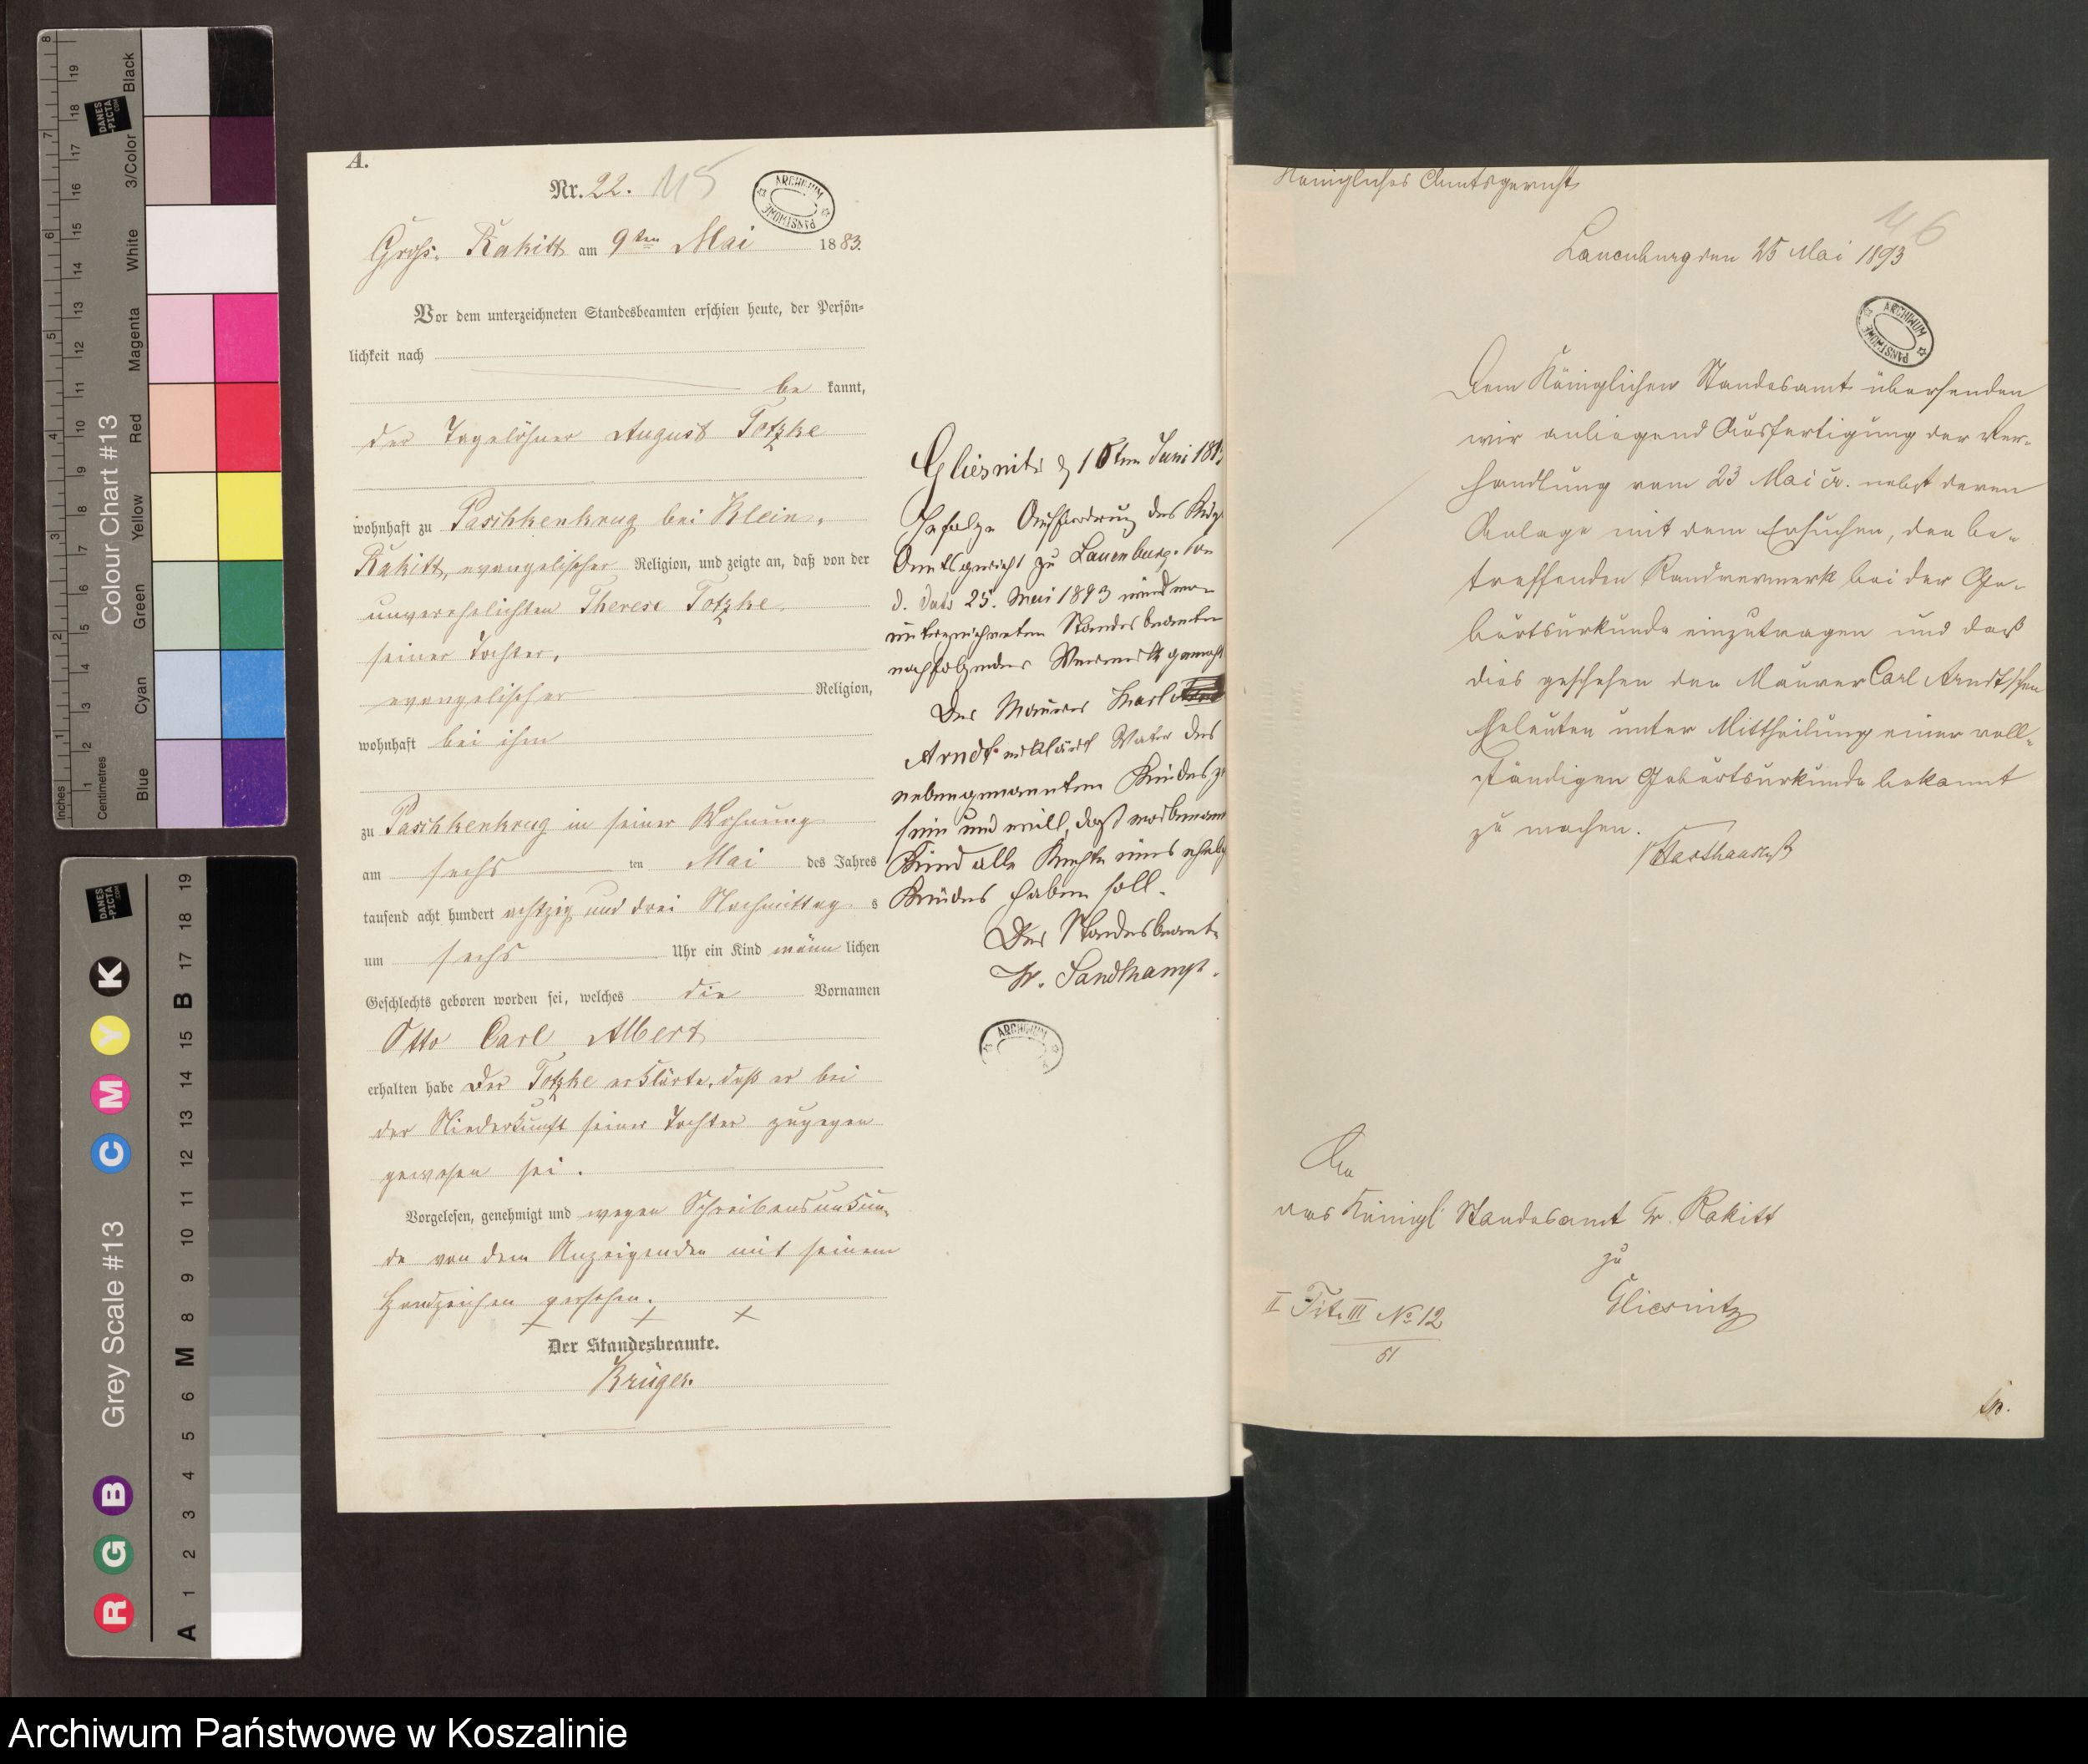 A.
Nr. 22. 115
ARCHIWUM PAŃSTWOWE
Gross-Rakitt am 9ten Mai 1883.
Vor dem unterzeichneten Standesbeamten erschien heute, der Persön-
lichkeit nach
be kannt,
der Tagelöhner August Totzke
wohnhaft zu Paschkenkrug bei Klein-
Rakitt, evangelischer Religion, und zeigte an, daß von der
unverehelichten Therese Totzke,
seiner Tochter,
evangelischer Religion,
wohnhaft bei ihm
zu Paschkenkrug in seiner Wohnung
am sechs ten Mai des Jahres
tausend acht hundert achtzig und drei Nachmittag s
um sechs Uhr ein Kind männ lichen
Geschlechts geboren worden sei, welches die Vornamen
Otto Carl Albert
erhalten habe Der Totzke erklärte, daß er bei
der Niederkunft seiner Tochter zugegen
gewesen sei.
Vorgelesen, genehmigt und wegen Schreibensunkun-
de von dem Anzeigenden mit seinem
Handzeichen versehen.
+ + +
Der Standesbeamte.
Krüger.
Gliesnitz d 15ten Juni 189
Infolge Aufforderung des Kögl
Amtsgericht zu Lauenburg
d. dato 25. Mai 1893 wird von
unterzeichneten Standesbeamten
nachfolgender Vermerk gemacht
Der Maurer Karl
Arndt erklärt Vater des
nebengenannten Kindes zu
sein und will, daß
Kind alle Rechte eines ehel
Kindes haben soll.
Der Standesbeamt.
W. Sandkamp.
ARCHIWUM
Königliches Amtsgericht
116
Lauenburg den 25 Mai 1893
ARCHIWUM PAŃSTWOWE
Dem Königlichen Standesamt übersenden
wir anliegend Ausfertigung der Ver-
handlung vom 23 Mai cr. nebst deren
Anlage mit dem Ersuchen, den be-
treffenden Randvermerk bei der Ge-
burtsurkunde einzutragen und daß
dies geschehen den Maurer Carl Arndt'schen
Eheleuten unter Mittheilung einer voll-
ständigen Geburtsurkunde bekannt
zu machen.
An
das Königl Standesamt Gr. Rakitt
zu
Gliesnitz
II Tit. III No 12
51
Archiwum Państwowe w Koszalinie
Colour Chart #13
Black
3/Color
White
Magenta
Red
Yellow
Green
Cyan
Blue
Inches
Centimetres
DANES PICTA .COM
Grey Scale #13
R G B C M Y K
A 1 2 3 4 5 6 M 8 9 10 11 12 13 14 15 B 17 18 19